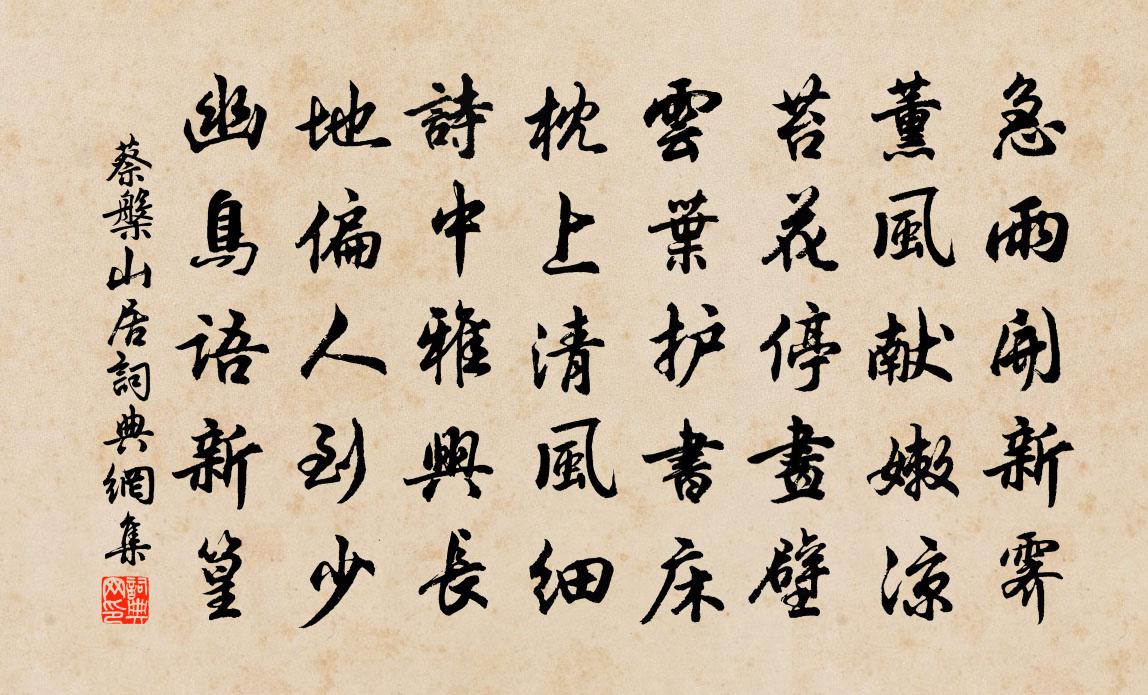 急雨開新霽
薰風献嫩涼
苔花停畫壁
雲葉护書床
枕上清風細
詩中雅興長
地偏人到少
幽鳥語新篁
蔡槃山居詞典網集
詞典网印